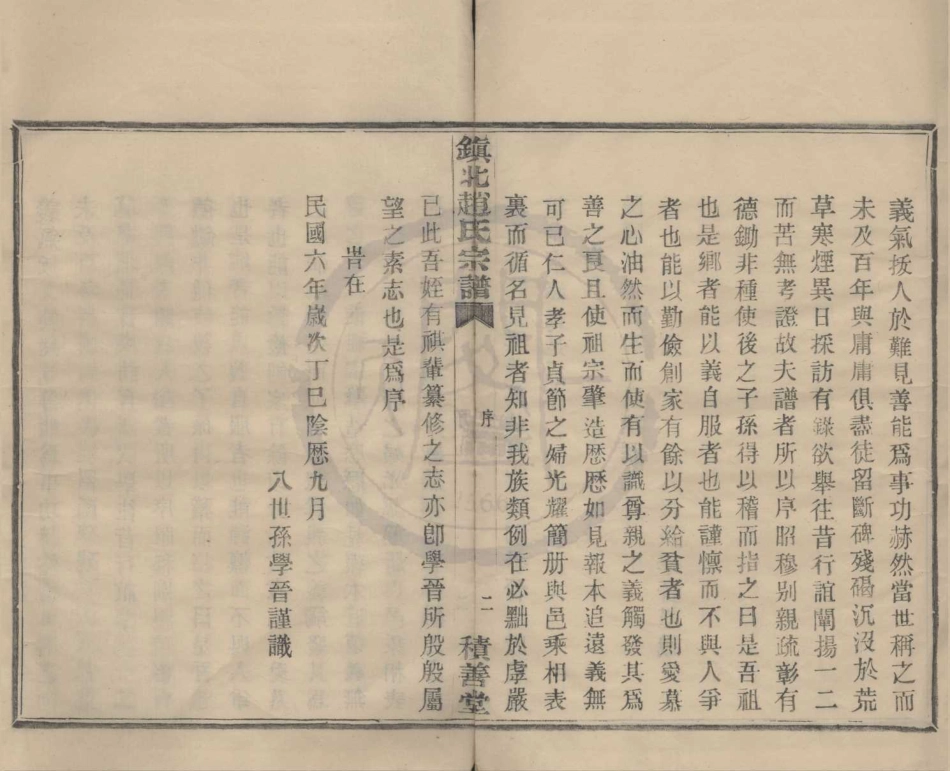 義氣拔人於難見善能爲事功赫然當世稱之而
未及百年與庸庸俱盡徒留斷碑殘碣沉沒於荒
草寒煙異日採訪有錄欲舉往昔行誼闡揚一二
而苦無考證故夫譜者所以序昭穆別親疏彰有
德鋤非種使後之子孫得以稽而指之曰是吾祖
也是鄉者能以義自服者也能謹懍而不與人爭
者也能以勤儉創家有餘以分給貧者也則愛慕
之心油然而生而使有以識尊親之義觸發其爲
善之良且使祖宗肇造歷歷如見報本追遠義無
可已仁人孝子貞節之婦光耀簡册與邑乘相表
裏而循名見祖者知非我族類例在必黜於虖嚴
鎮北趙氏宗譜
序
二
積善堂
已此吾姪有祺輩纂修之志亦卽學晉所殷殷屬
望之素志也是爲序
旹在
民國六年歲次丁巳陰曆九月
八世孫學晉謹識